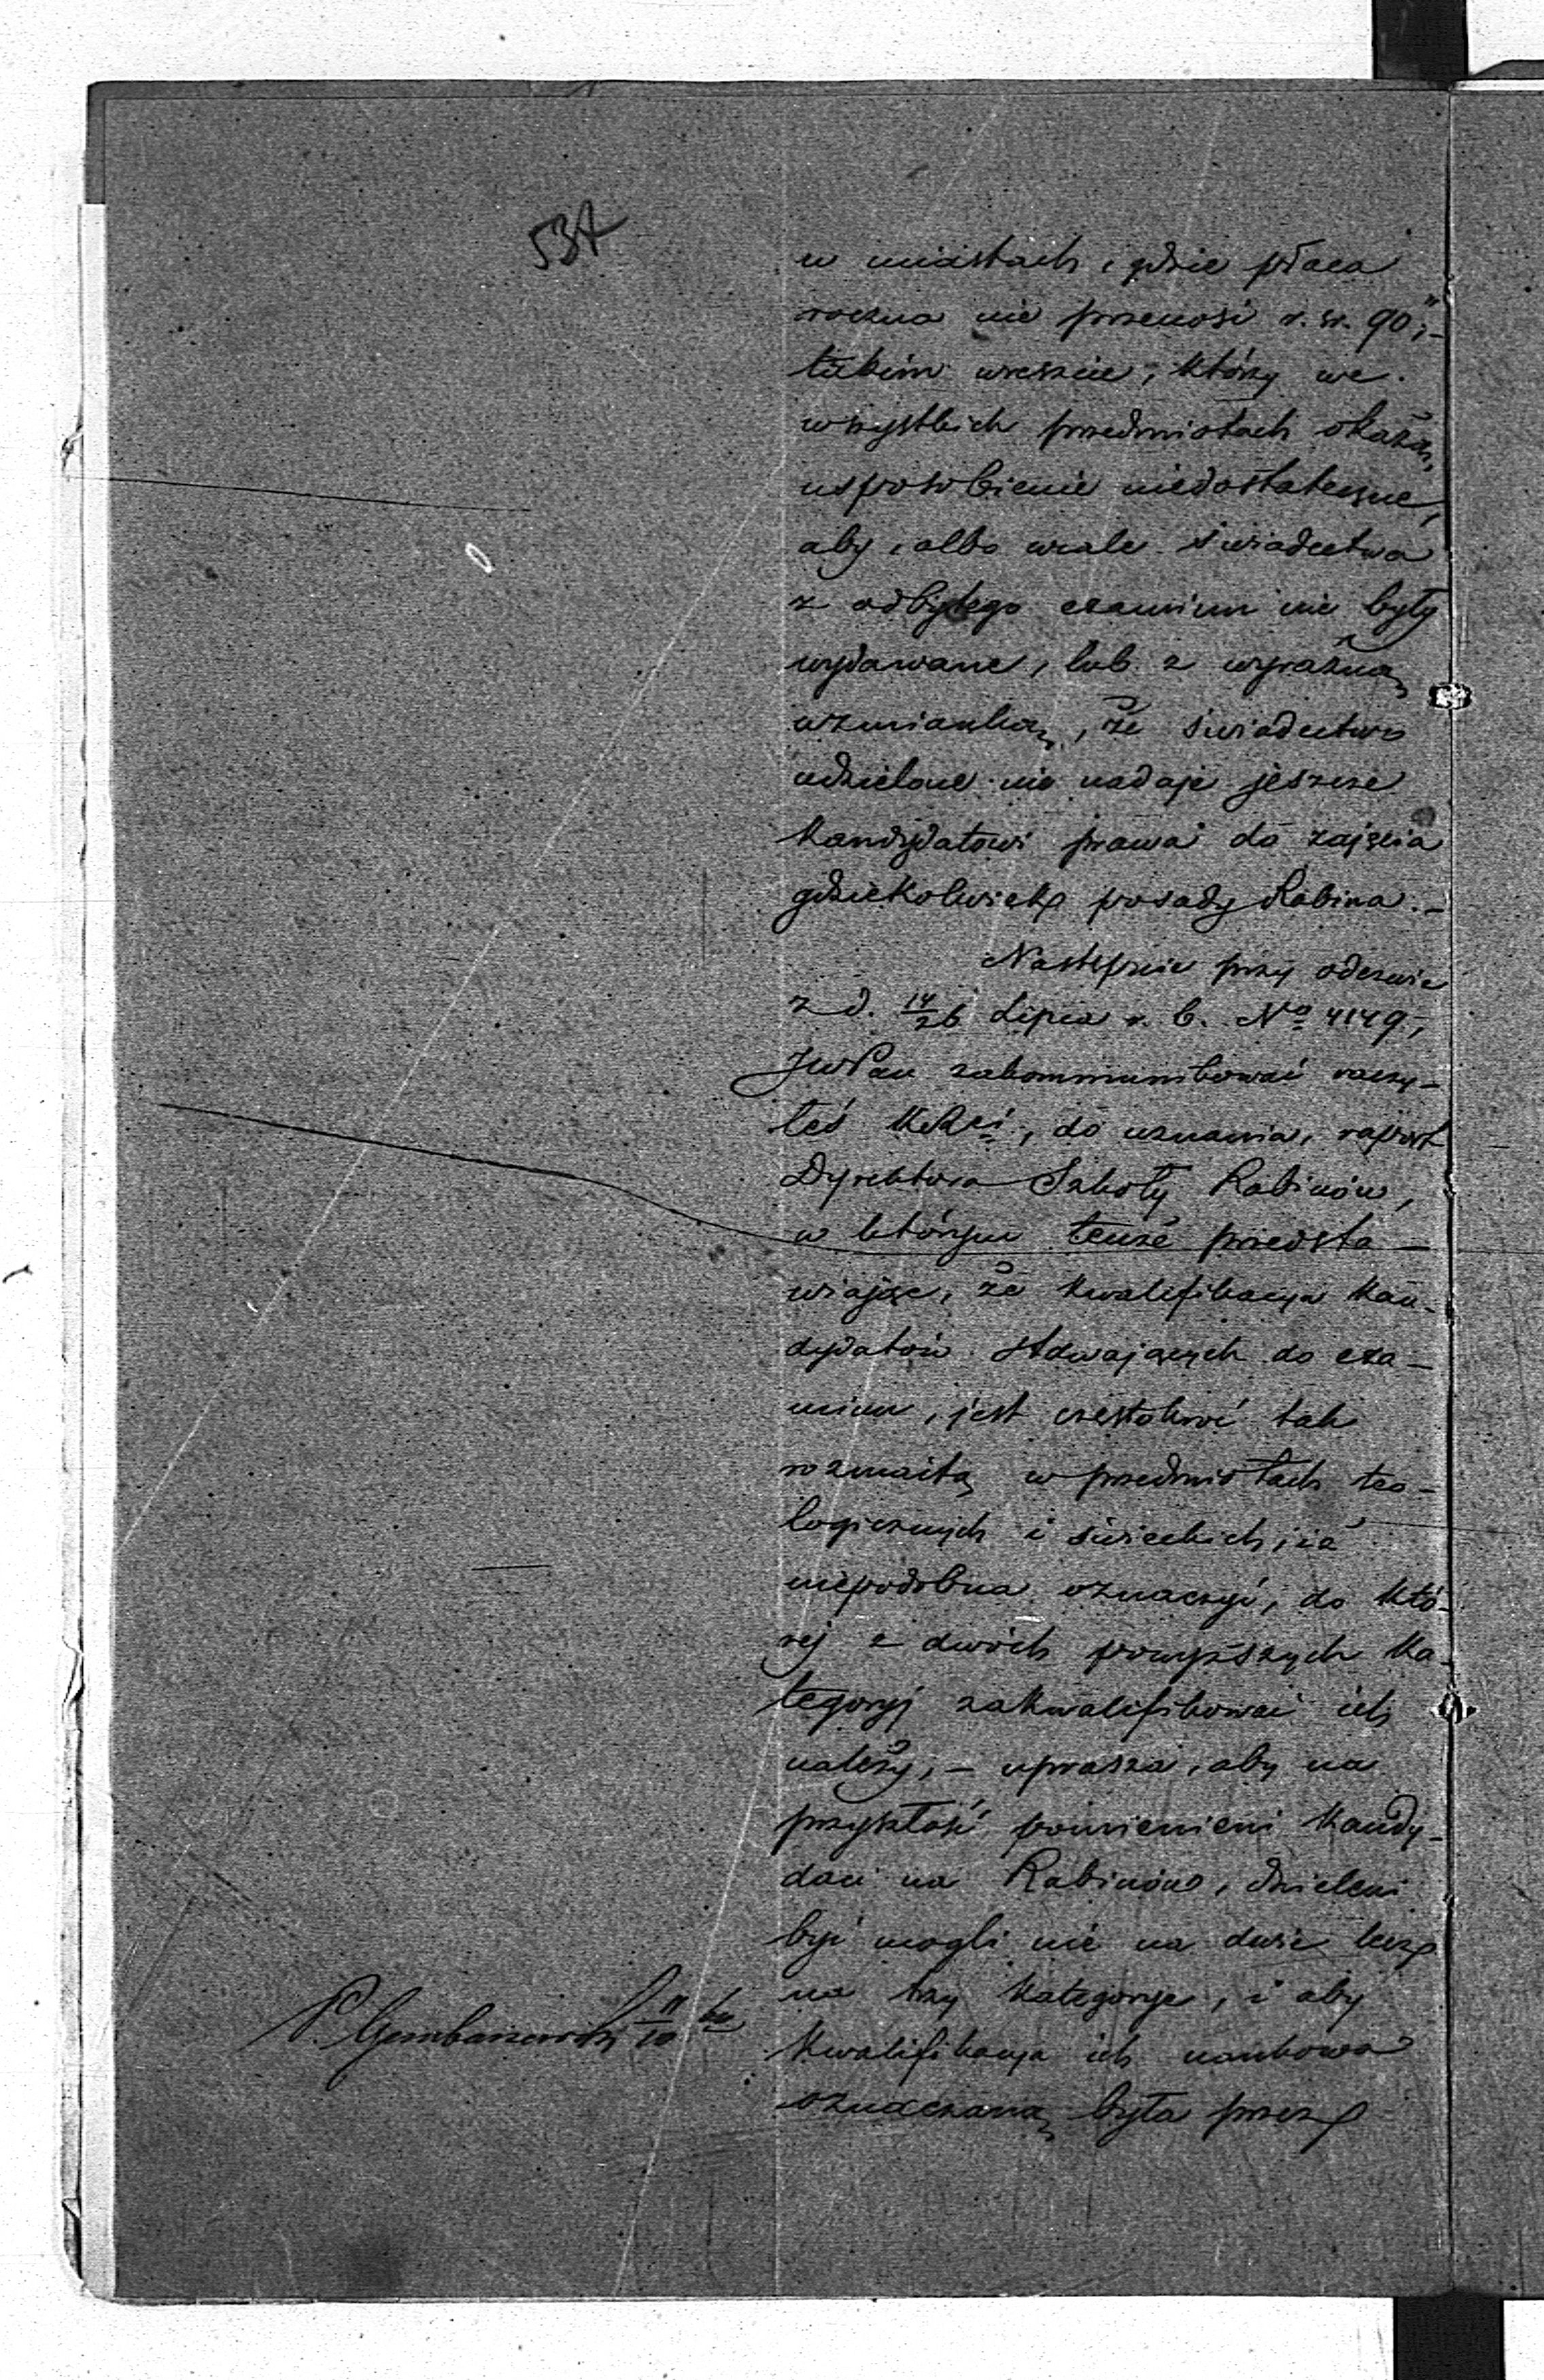 537
w miastach, gdzie płaca
roczna nie przenosi r. sr. 90,-
takim wreszcie, którzy we
wszystkich przedmiotach okażą
usposobienie niedostateczne,
aby, albo wcale świadectwa
z odbytego examinu nie były
wydawane, lub z wyraźną
wzmianką, że świadectwo
udzielone nie nadaje jeszcze
Kandydatowi prawa do zajęcia
gdziekolwiek posady Rabina.-
Następnie przy odezwie
z d. 14/26 Lipca r. b. No 4149,
JWPan zakommunikować raczy-
łeś , do uznania, raport
Dyrektora Szkoły Rabinów,
w którym tenże przedsta-
wiając, że Kwalifikacya Kan-
dydatów stawających do exa-
minu, jest częstokroć tak
rozmaitą w przedmiotach teo-
logicznych i świeckich, iż
niepodobna oznaczyć, do któ-
rej z dwóch powyższych Ka-
tegoryj zakwalifikować ich
należy, - uprasza, aby na
przyszłość pomienieni Kandy-
daci na Rabinów, dzieleni
być mogli nie na dwie lecz
na trzy Kategorye, i aby
Kwalifikacya ich naukowa
oznaczaną była przez